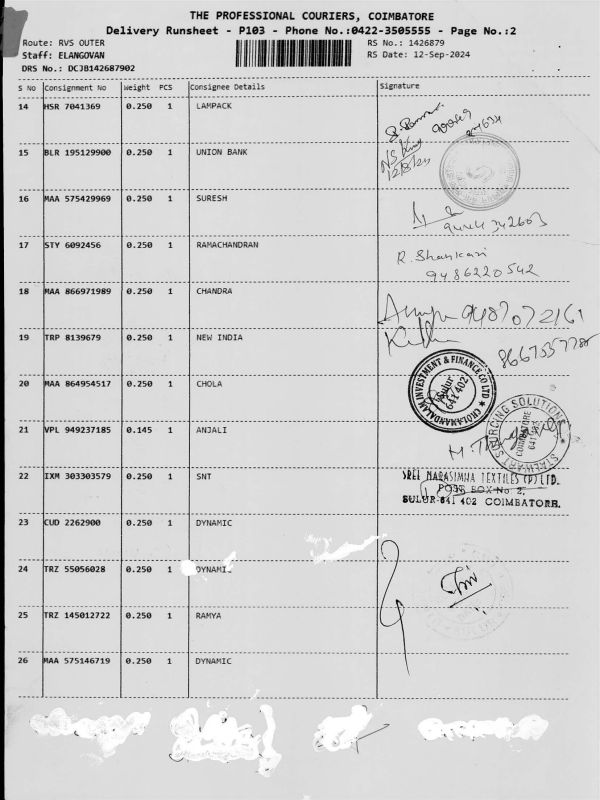 THE PROFESSIONAL COURIERS, COIMBATORE
Delivery Runsheet - P103 - Phone No.:0422-3505555 - Page No.:2
Route: RVS OUTER RS No.: 1426879
Staff: ELANGOVAN RS Date: 12-Sep-2024
DRS No.: DCJB142687902
S No Consignment No Weight PCS Consignee Details Signature
14 HSR 7041369 0.250 1 LAMPACK
15 BLR 195129900 0.250 1 UNION BANK
16 MAA 575429969 0.250 1 SURESH
17 STY 6092456 0.250 1 RAMACHANDRAN
R. Shankari
9486220542
18 MAA 866971989 0.250 1 CHANDRA
19 TRP 8139679 0.250 1 NEW INDIA
20 MAA 864954517 0.250 1 CHOLA
CHOLAMANDALAM INVESTMENT & FINANCE CO LTD
Sulur
641 402
21 VPL 949237185 0.145 1 ANJALI
STALWART SOURCING SOLUTIONS
COIMBATORE
22 IXM 303303579 0.250 1 SNT
SREE NARASIMHA TEXTILES (P) LTD.
POST BOX No. 2,
SULUR-641 402 COIMBATORE.
23 CUD 2262900 0.250 1 DYNAMIC
24 TRZ 55056028 0.250 1 DYNAMI
25 TRZ 145012722 0.250 1 RAMYA
26 MAA 575146719 0.250 1 DYNAMIC